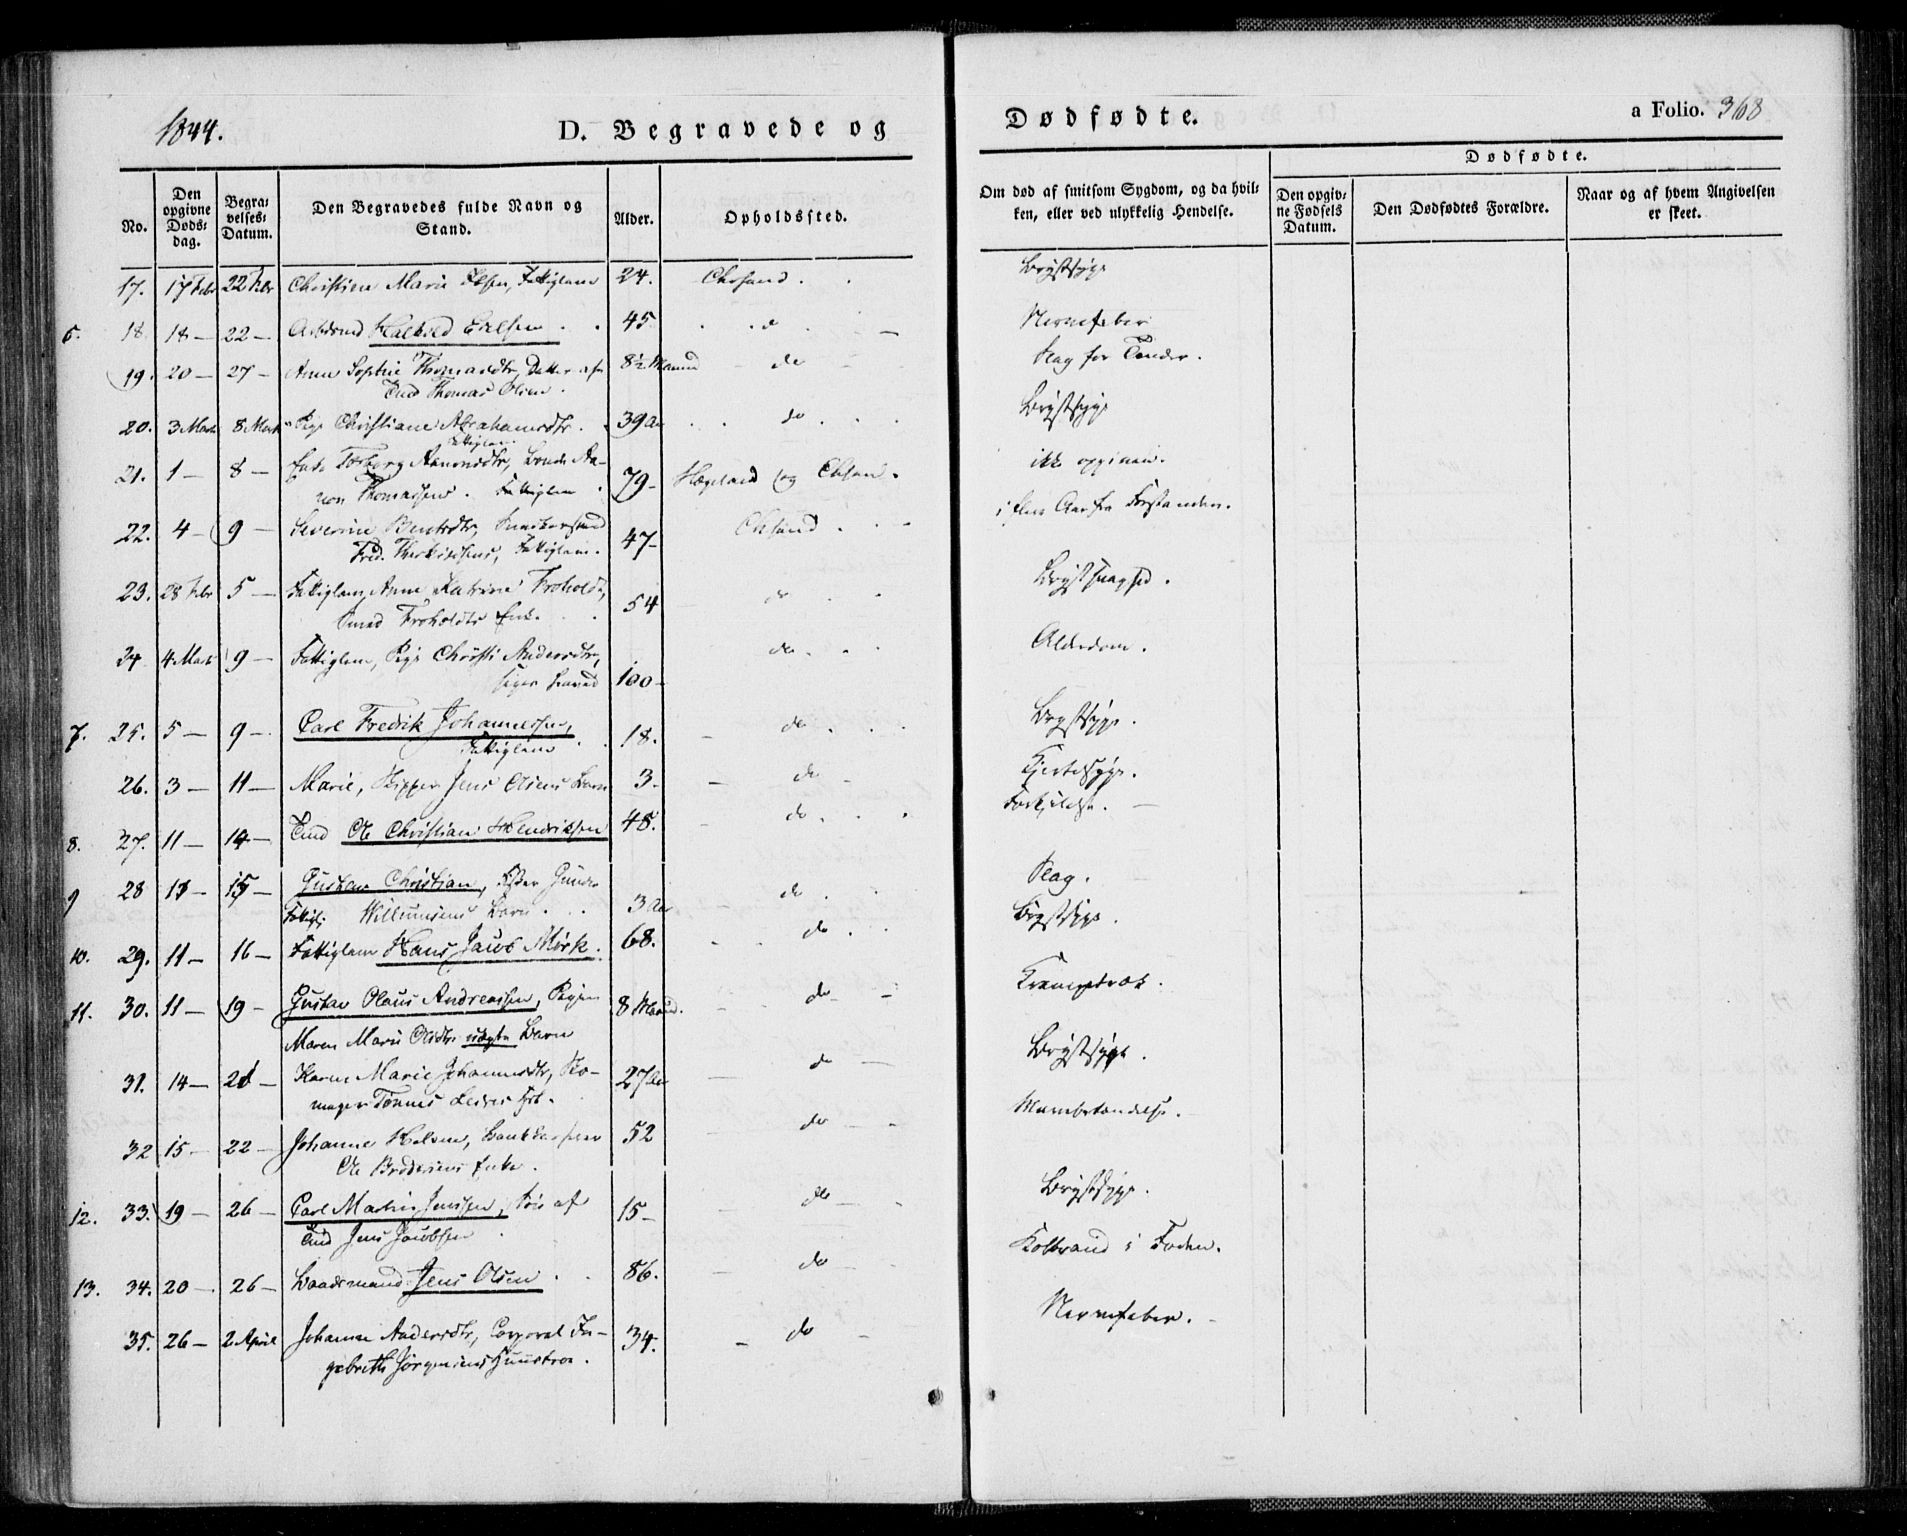 1844.
D. Begravede og
Dødfødte.
a Folio. 368
No.
Den opgivne Døds-dag.
Begra-velses-Datum.
Den Begravedes fulde Navn og Stand.
Alder.
Opholdssted.
Om død af smitsom Sygdom, og da hvil-
ken, eller ved ulykkelig Hendelse.
Dødfødte.
Den opgiv-ne Fødsels Datum.
Den Dødfødtes Forældre.
Naar og af hvem Angivelsen er skeet.
17. 17 Febr 22 Febr Christine Marie Fattiglem 24. Chrsand. Brystsyge
6. 18. 18 — 22 — Halvold 45 do Nervefeber
19. 20 — 27 — Anne Sophie Thomasdtr, Datter af 8½ Maaned do Slag for Tænder.
Tind Thomas Olsen.
20. 3 Marts 8 Marts Pige Christiane Abrahamsdtr. 39 Aar do Brystsyge
21. 1 — 8 — Enke Torborg Aanonsdtr, Bonde Aa- 79 — Hægeland og Chsand. ikke opgiven.
non Thomassens. Fattiglem
22. 4 — 9 — Severine Bentsdtr, 47 — Chsand i flere Aar fra Forstanden.
Fred. Fattiglem.
23. 28 Febr 5 — Fattiglem Anne Katrine Froholdt, 54 do Brystsvaghed.
Smed Froholdts Enke.
24 4 Marts 9 — Fattiglem, Pige Christi Andersdtr, 100 — do Alderdom.
7. 25. 5 — 9 — Carl Fredrik Johannessen, 18. do Brystsyge.
Fattiglem
26. 3 — 11 — Marie, Skipper Jens Olsens Barn 3. do Kjertelsyge.
8. 27. 11 — 14 — Tind Ole Christian Hendriksen 48. do Forkjølelse.
9 28 13 — 15 — Gustav Christian, Fisker Gunder 3 Aar do Slag.
Fattigl. Willumsens Barn.
10. 29. 11 — 16 — Fattiglem Hans Jacob Mörk. 68. do Brystsyge.
11. 30. 11 — 19 — Gustav Olaus Andreassen, Pigen 8 Maaned. do Krampetræk.
Maren Marie Olsdtr uægte Barn
31. 14 — 21 — Karen Marie Johannesdtr, Sko- 27 Aar do Brystsyge.
mager Tønnes
32 15 — 22 — Johanne 52 do Mavebetændelse.
Ole Brodersens Enke.
12. 33. 19 — 26 — Carl Martin Jenssen, Søn af 15 — do Brystsyge.
Tind Jens Jacobsen
13. 34. 20 — 26 — Baadsmand Jens Olsen 86. do Koldbrand i Foden.
35. 26 — 2 April Johanne Andersdtr, Corporal In- 34. do Nervefeber.
gebreth Jørgensens Huustroe.